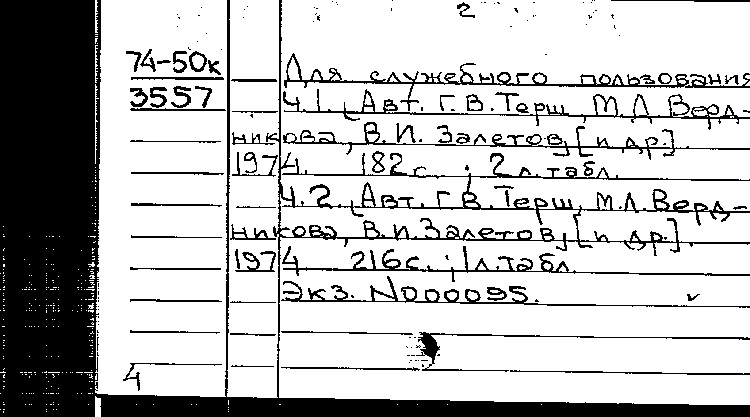 2
74-50к Для служебного пользования
3557 Ч.1. [Авт. Г.В. Терш, М.Л. Верд-
никова, В.И. Залетов, [и др.].
1974. 182с. ; 2 л. табл.
Ч.2. [Авт. Г.В. Терш, М.Л. Верд-
никова, В.И. Залетов, [и др.].
1974 216с. ; 1л. табл.
Экз. N000095.
4